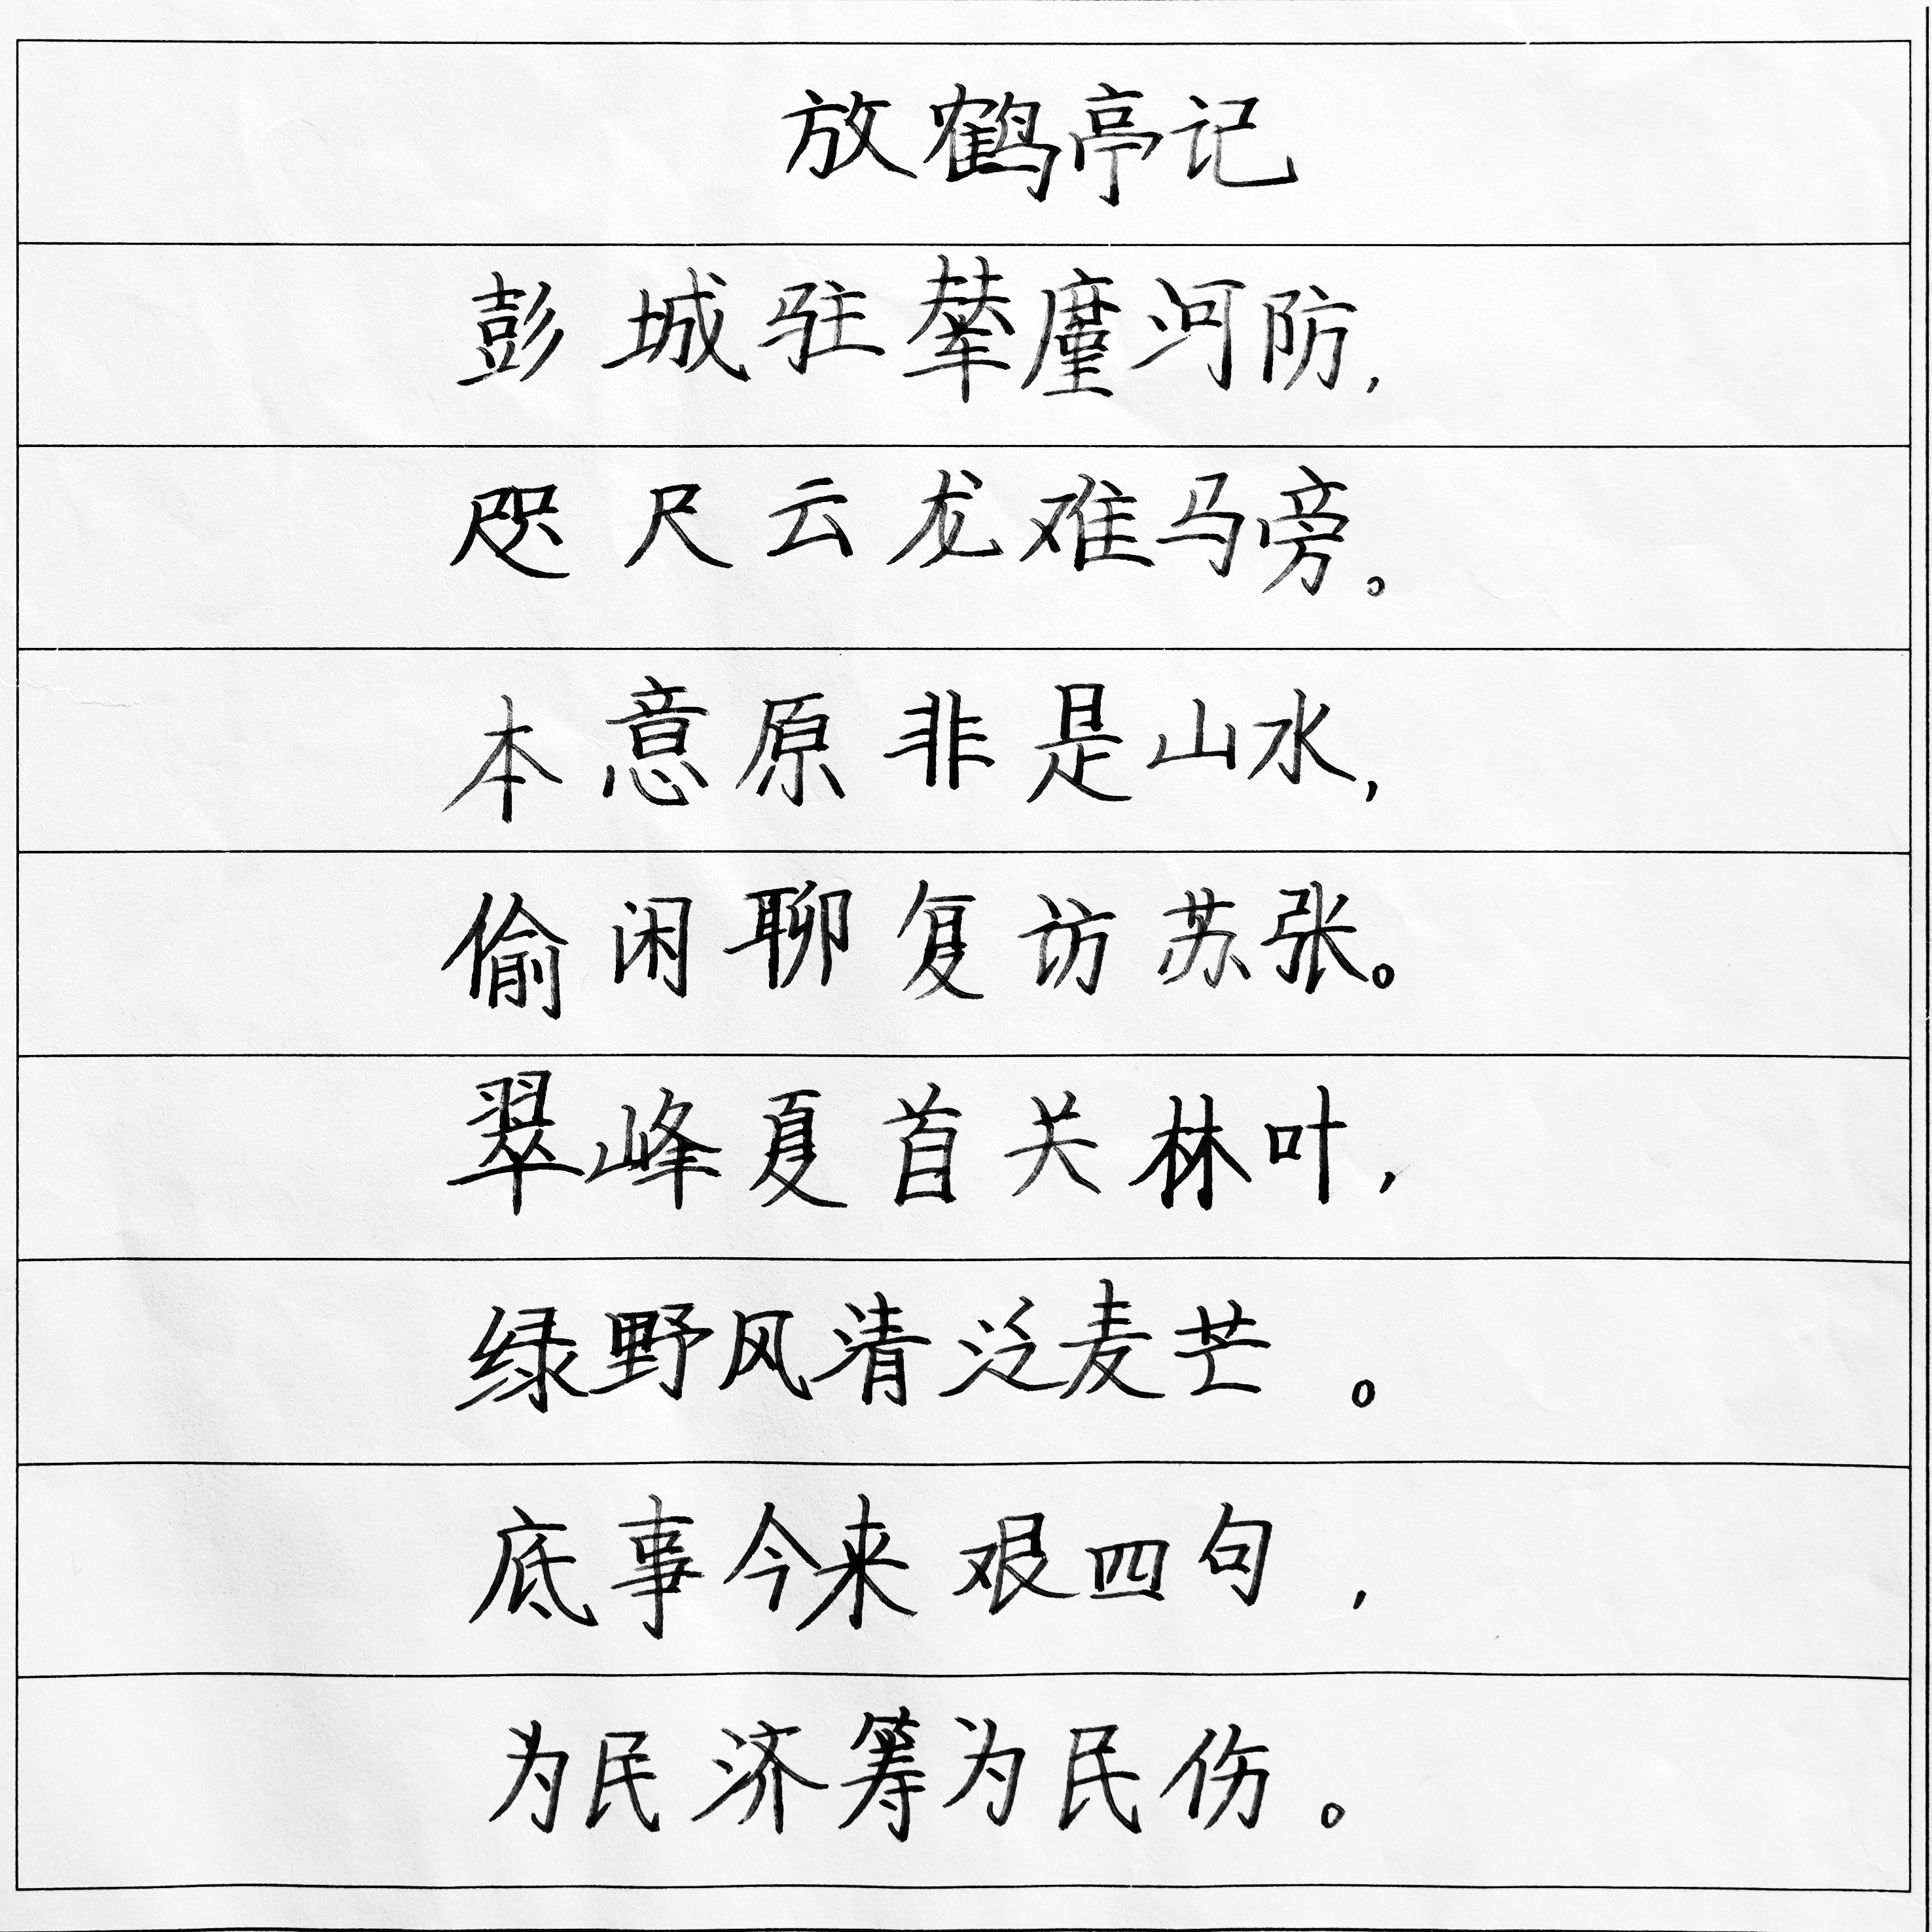 放鹤亭记
彭城驻辇廑河防，
咫尺云龙难马旁。
本意原非是山水，
偷闲聊复访苏张。
翠峰夏首关林叶，
绿野风清泛麦芒。
底事今来艰四句，
为民济筹为民伤。